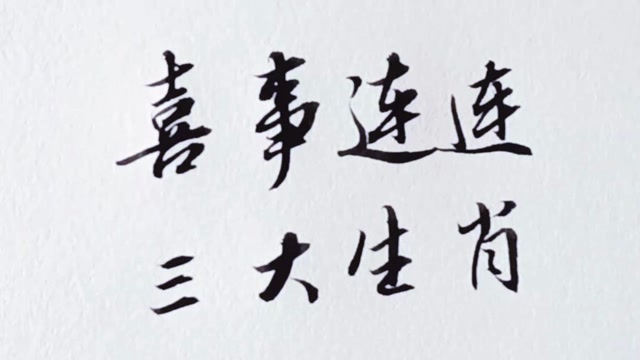 喜事连连
三大生肖